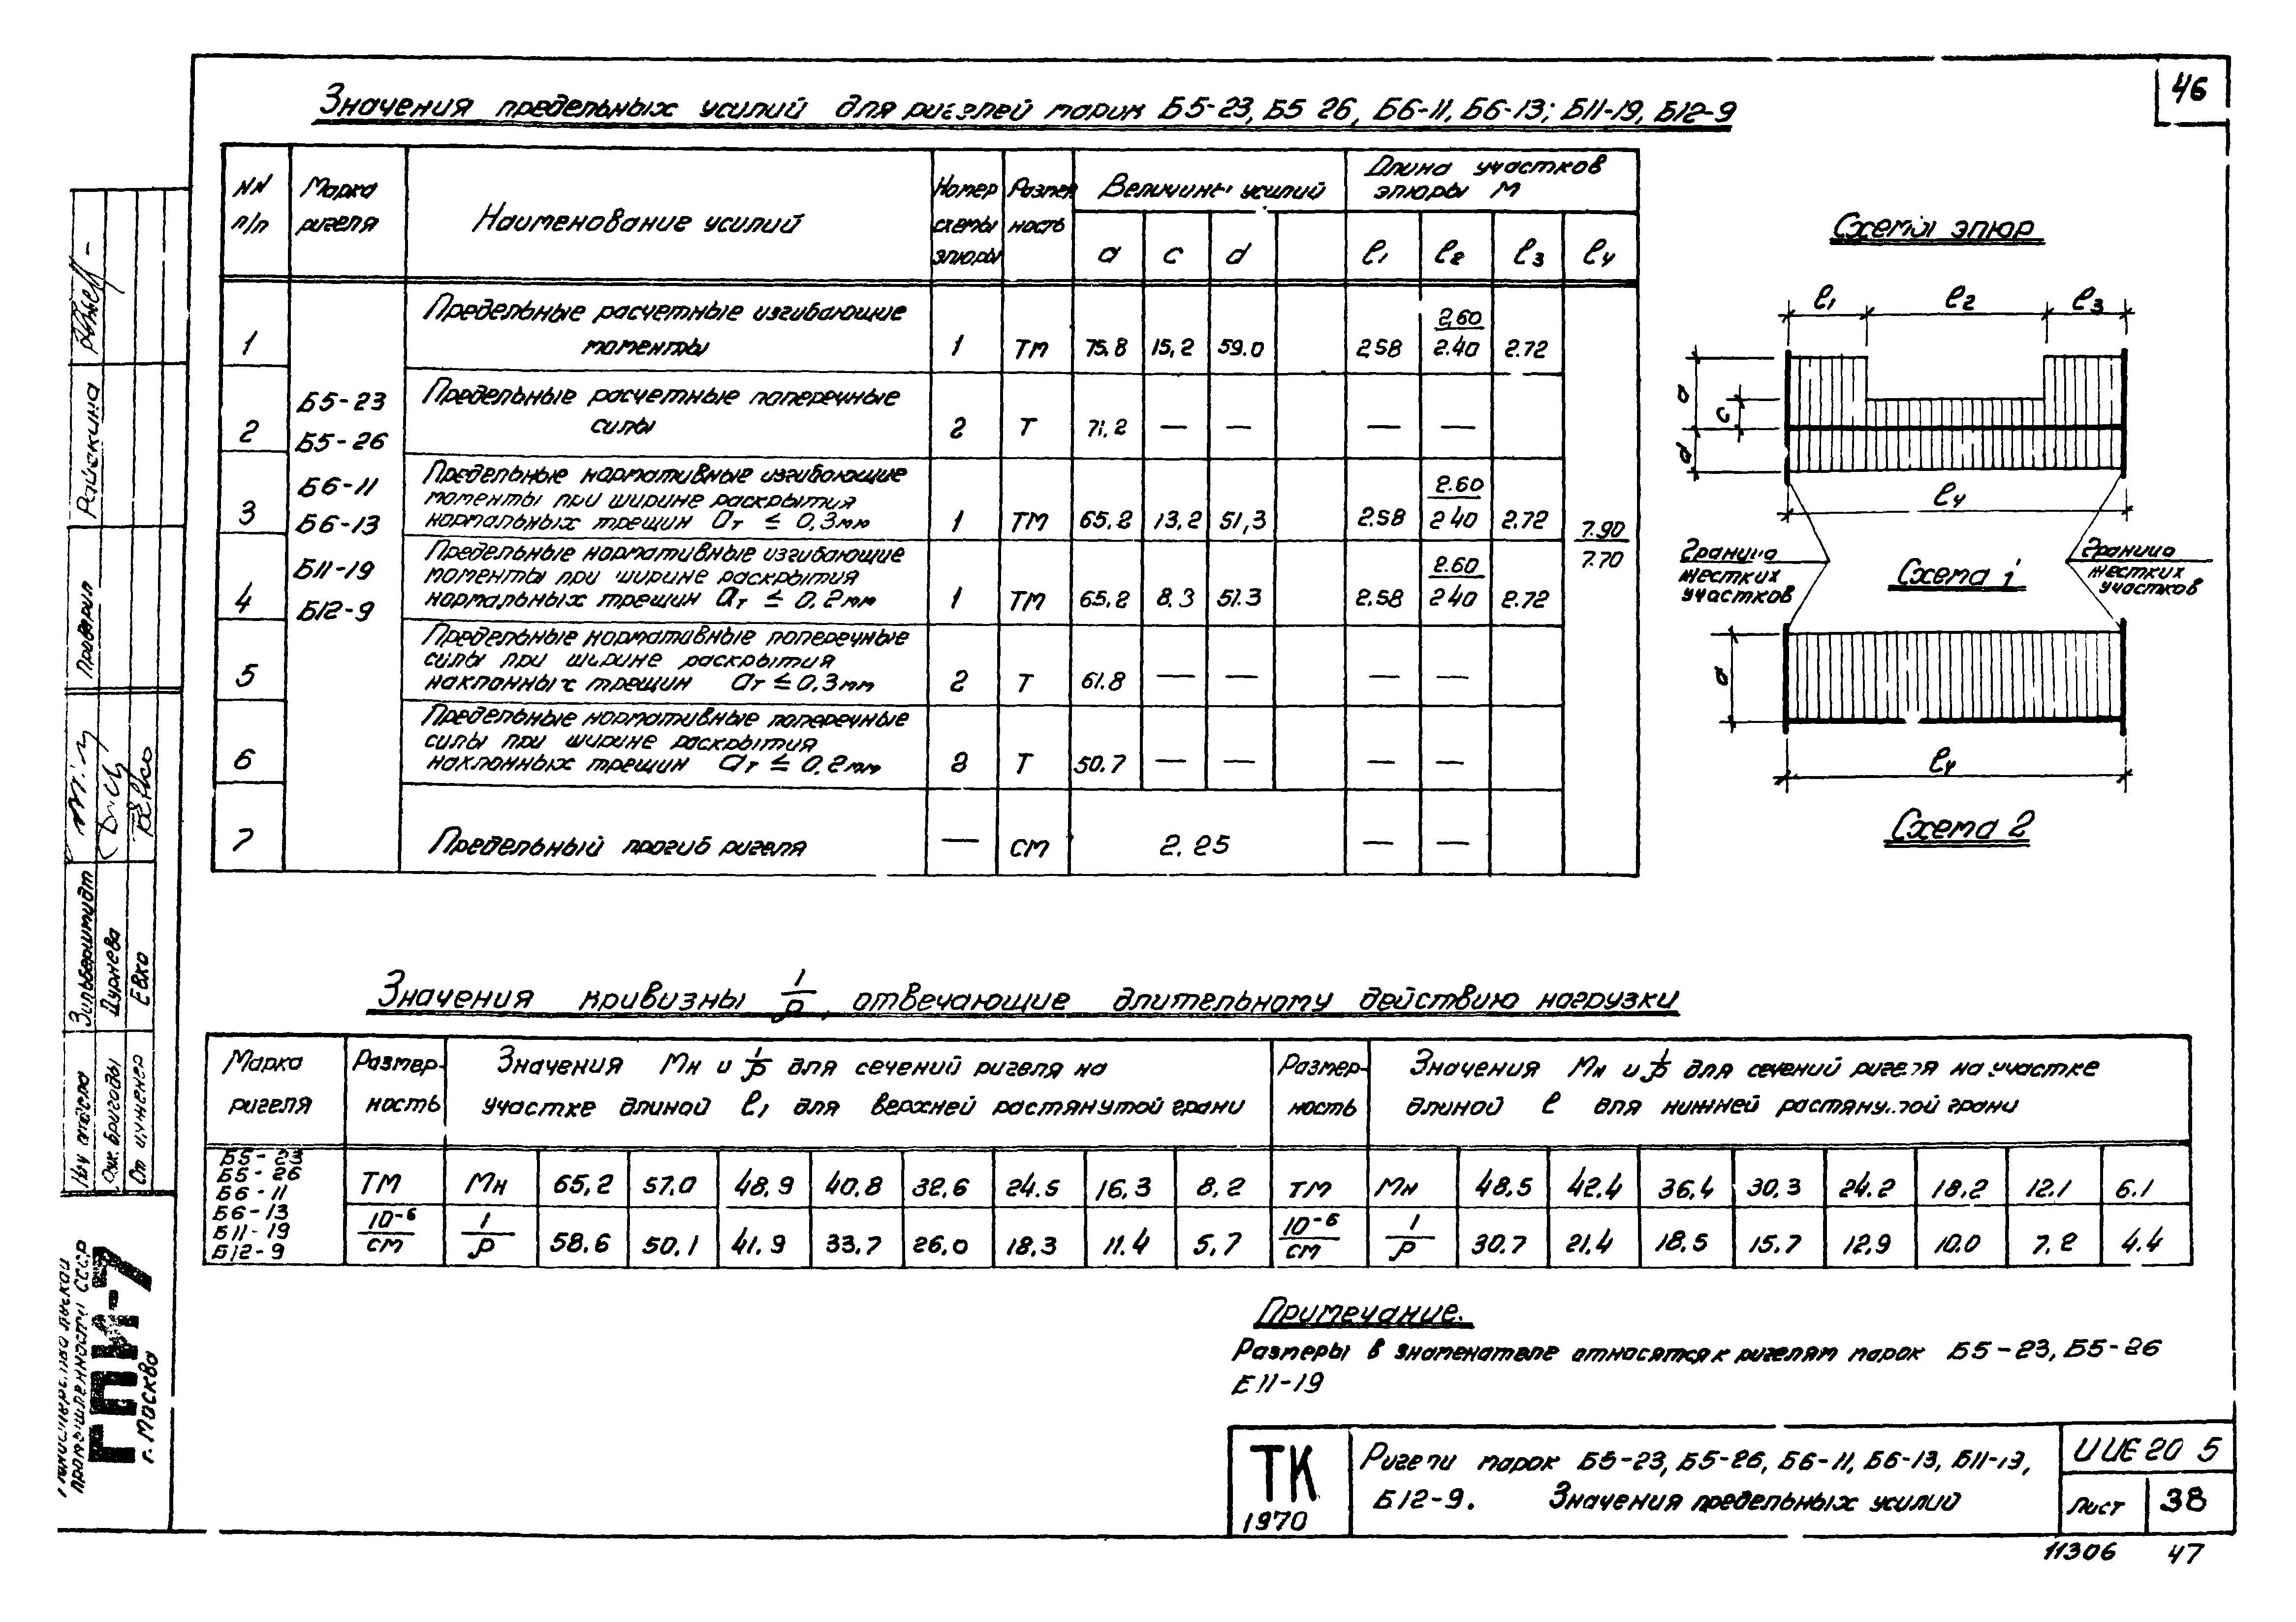 46
Значения предельных усилий для ригелей марки Б5-23, Б5 26, Б6-11, Б6-13; Б11-19, Б12-9
NN п/п
Марка ригеля
Наименование усилий
Номер схемы эпюры
Размерность
Величины усилий
Длина участков эпюры м
a c d l1 l2 l3 l4
1 Предельные расчетные изгибающие моменты 1 тм 75.8 15,2 59.0 2.58 2,60/2.40 2.72
2 Предельные расчетные поперечные силы 2 т 71,2 — — — —
3 Предельные нормативные изгибающие моменты при ширине раскрытия нормальных трещин aт ≤ 0,3мм 1 тм 65.2 13,2 51,3 2.58 2.60/2 40 2.72
4 Предельные нормативные изгибающие моменты при ширине раскрытия нормальных трещин aт ≤ 0,2мм 1 тм 65.2 8.3 51.3 2.58 2.60/2 40 2.72
5 Предельные нормативные поперечные силы при ширине раскрытия наклонных трещин aт ≤ 0,3мм 2 т 61.8 — — — —
6 Предельные нормативные поперечные силы при ширине раскрытия наклонных трещин aт ≤ 0,2мм 2 т 50.7 — — — —
7 Предельный прогиб ригеля — см 2.25 — —
Б5-23
Б5-26
Б6-11
Б6-13
Б11-19
Б12-9
7.90/7.70
Схемы эпюр
l1 l2 l3
a c d
l4
Граница жестких участков
Схема 1
Граница жестких участков
a
l4
Схема 2
Значения кривизны 1/ρ, отвечающие длительному действию нагрузки
Марка ригеля
Размерность
Значения Mн и 1/ρ для сечений ригеля на участке длиной l1 для верхней растянутой грани
Размерность
Значения Mн и 1/ρ для сечений ригеля на участке длиной l для нижней растянутой грани
Б5-23
Б5-26
Б6-11
Б6-13
Б11-19
Б12-9
тм Mн 65,2 57.0 48,9 40,8 32,6 24.5 16,3 8,2 тм Mн 48,5 42.4 36,4 30,3 24.2 18,2 12,1 6.1
10-6/см 1/ρ 58.6 50,1 41.9 33.7 26.0 18.3 11.4 5,7 10-6/см 1/ρ 30.7 21,4 18,5 15.7 12,9 10.0 7,2 4.4
Примечание.
Размеры в знаменателе относятся к ригелям марок Б5-23, Б5-26
Б11-19
ТК
1970
Ригели марок Б5-23, Б5-26, Б6-11, Б6-13, Б11-19,
Б12-9. Значения предельных усилий
ИИЕ20 5
Лист 38
11306 47
Проверил
Зильберштидт
Дурнева
Евко
Нач отдела
Рук. бригады
Ст инженер
промышленности СССР
ГПИ-7
г. Москва